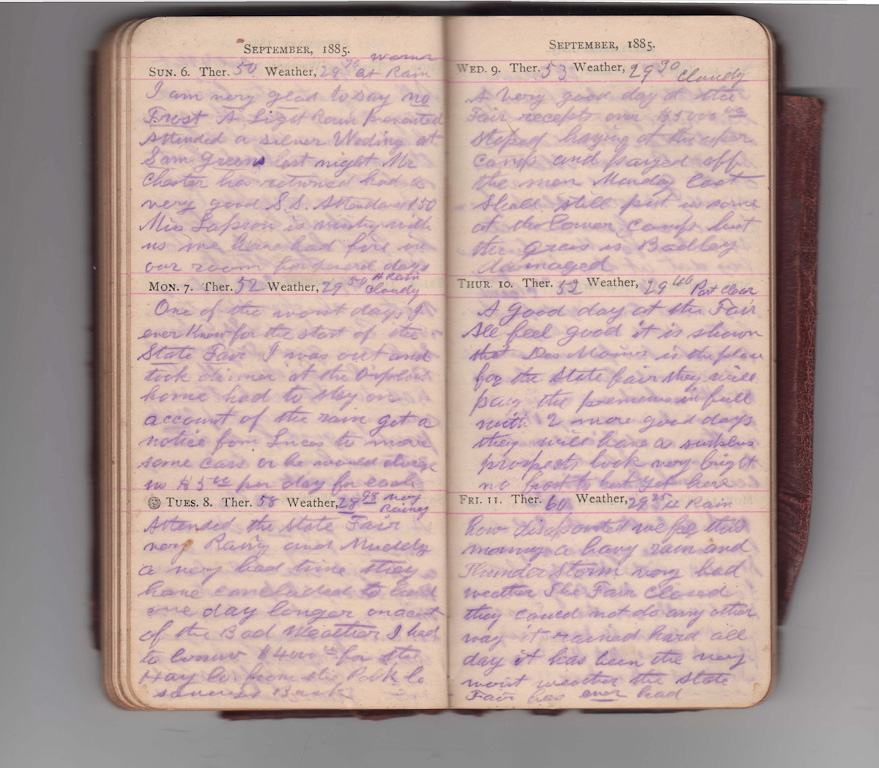 SEPTEMBER, 1885.
SUN. 6. Ther. 50 Weather, 29 at Rain
I am very glad to say no
Frost A Light Rain Prevented
Attended a silver Weding at
Sam Greens last night Mr
Chester has returned had a
very good S.S. Attendance 150
Mis is with
us we have had fire in
our room for several days
MON. 7. Ther. 52 Weather, 29 50 Rain
Cloudy
One of the worst days I
ever Know for the start of the
State Fair I was out and
took dinner at the Orphans
home had to stay on
account of the rain got a
notice from Lucas to move
some cars or he would charge
us $5 00 per day for each
TUES. 8. Ther. 58 Weather, 28 95 very
Rainey
Attended the State Fair
very Rainy and Muddy
a very bad time they
have concluded to hold
one day longer on acct
of the Bad Weather I had
to borrow $4000 for the
Hay Co from the Polk Co
Bank
SEPTEMBER, 1885.
WED. 9. Ther. 53 Weather, 29 30 Cloudy
A Very good day at the
Fair recepts over
Stoped haying at the uper
camp and payed off
the men Monday last
Shall still put in some
at the lower camp but
the grass is Badley
damaged
THUR. 10. Ther. 52 Weather, 29 40 Part Clear
A good day at the Fair
All feel good it is shown
that Des Moines is the place
for the State fair they will
pay the premiums in full
with 2 more good days
they will have a surplus
prospects look very bright
no frosts but yet here
FRI. 11. Ther. 60 Weather, 29 25 H Rain
how disapointed we feel this
morning a heavy rain and
Thunder Storm very bad
weather The Fair Closed
they could not do any other
way it rained hard all
day it has been the very
worst weather the State
Fair has ever had